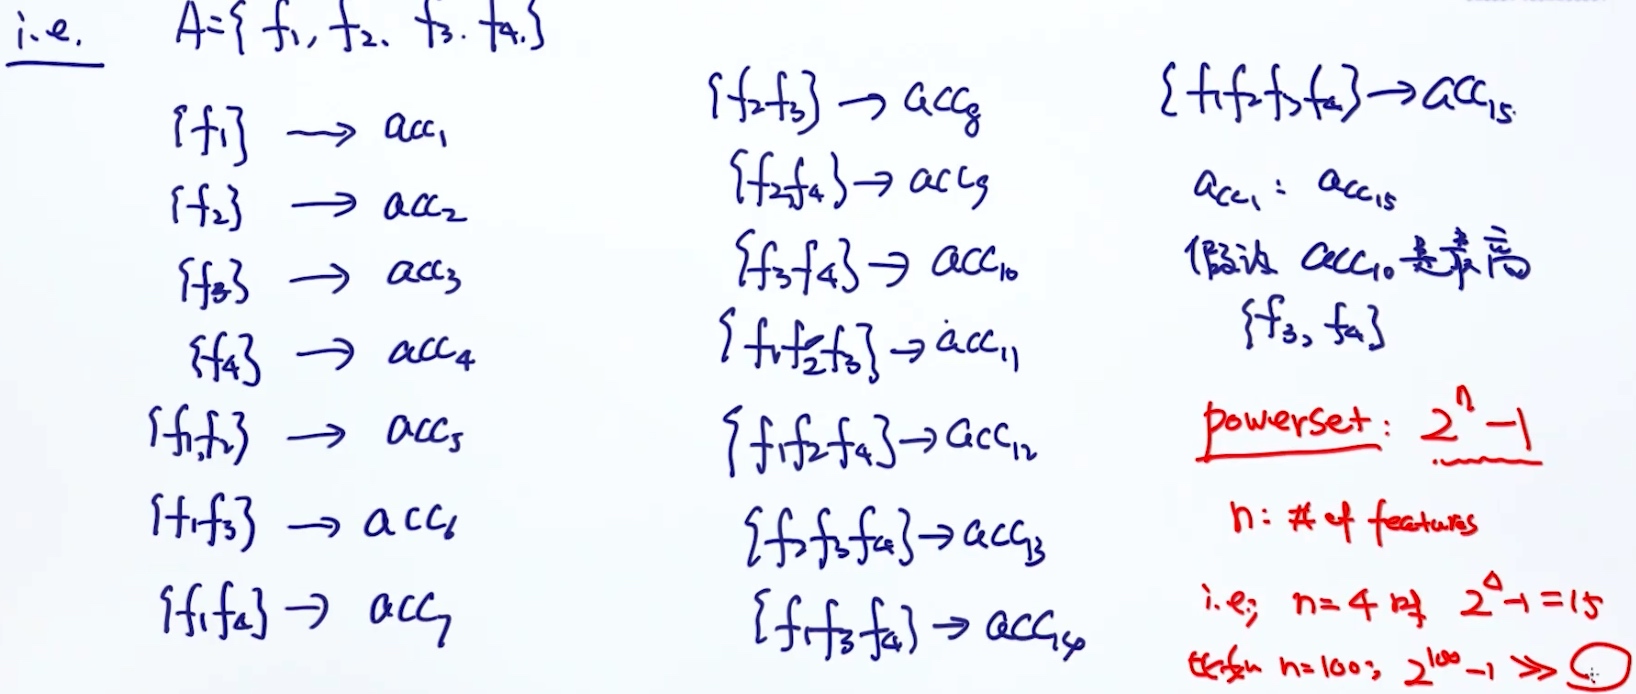 i.e. A={f₁, f₂、f₃. f₄.}
{f₁} → acc₁
{f₂} → acc₂
{f₃} → acc₃
{f₄} → acc₄
{f₁,f₂} → acc₅
{f₁f₃} → acc₆
{f₁f₄} → acc₇
{f₂f₃} → acc₈
{f₂,f₄} → acc₉
{f₃f₄} → acc₁₀
{f₁f₂f₃} → acc₁₁
{f₁f₂f₄} → acc₁₂
{f₂f₃f₄} → acc₁₃
{f₁f₃f₄} → acc₁₄
{f₁f₂f₃f₄} → acc₁₅
acc₁ : acc₁₅
假设 acc₁₀ 是最高
{f₃, f₄}
powerset: 2ⁿ-1
n: # of features
i.e; n=4 时 2⁴-1=15
比如 n=100; 2¹⁰⁰-1 ≫